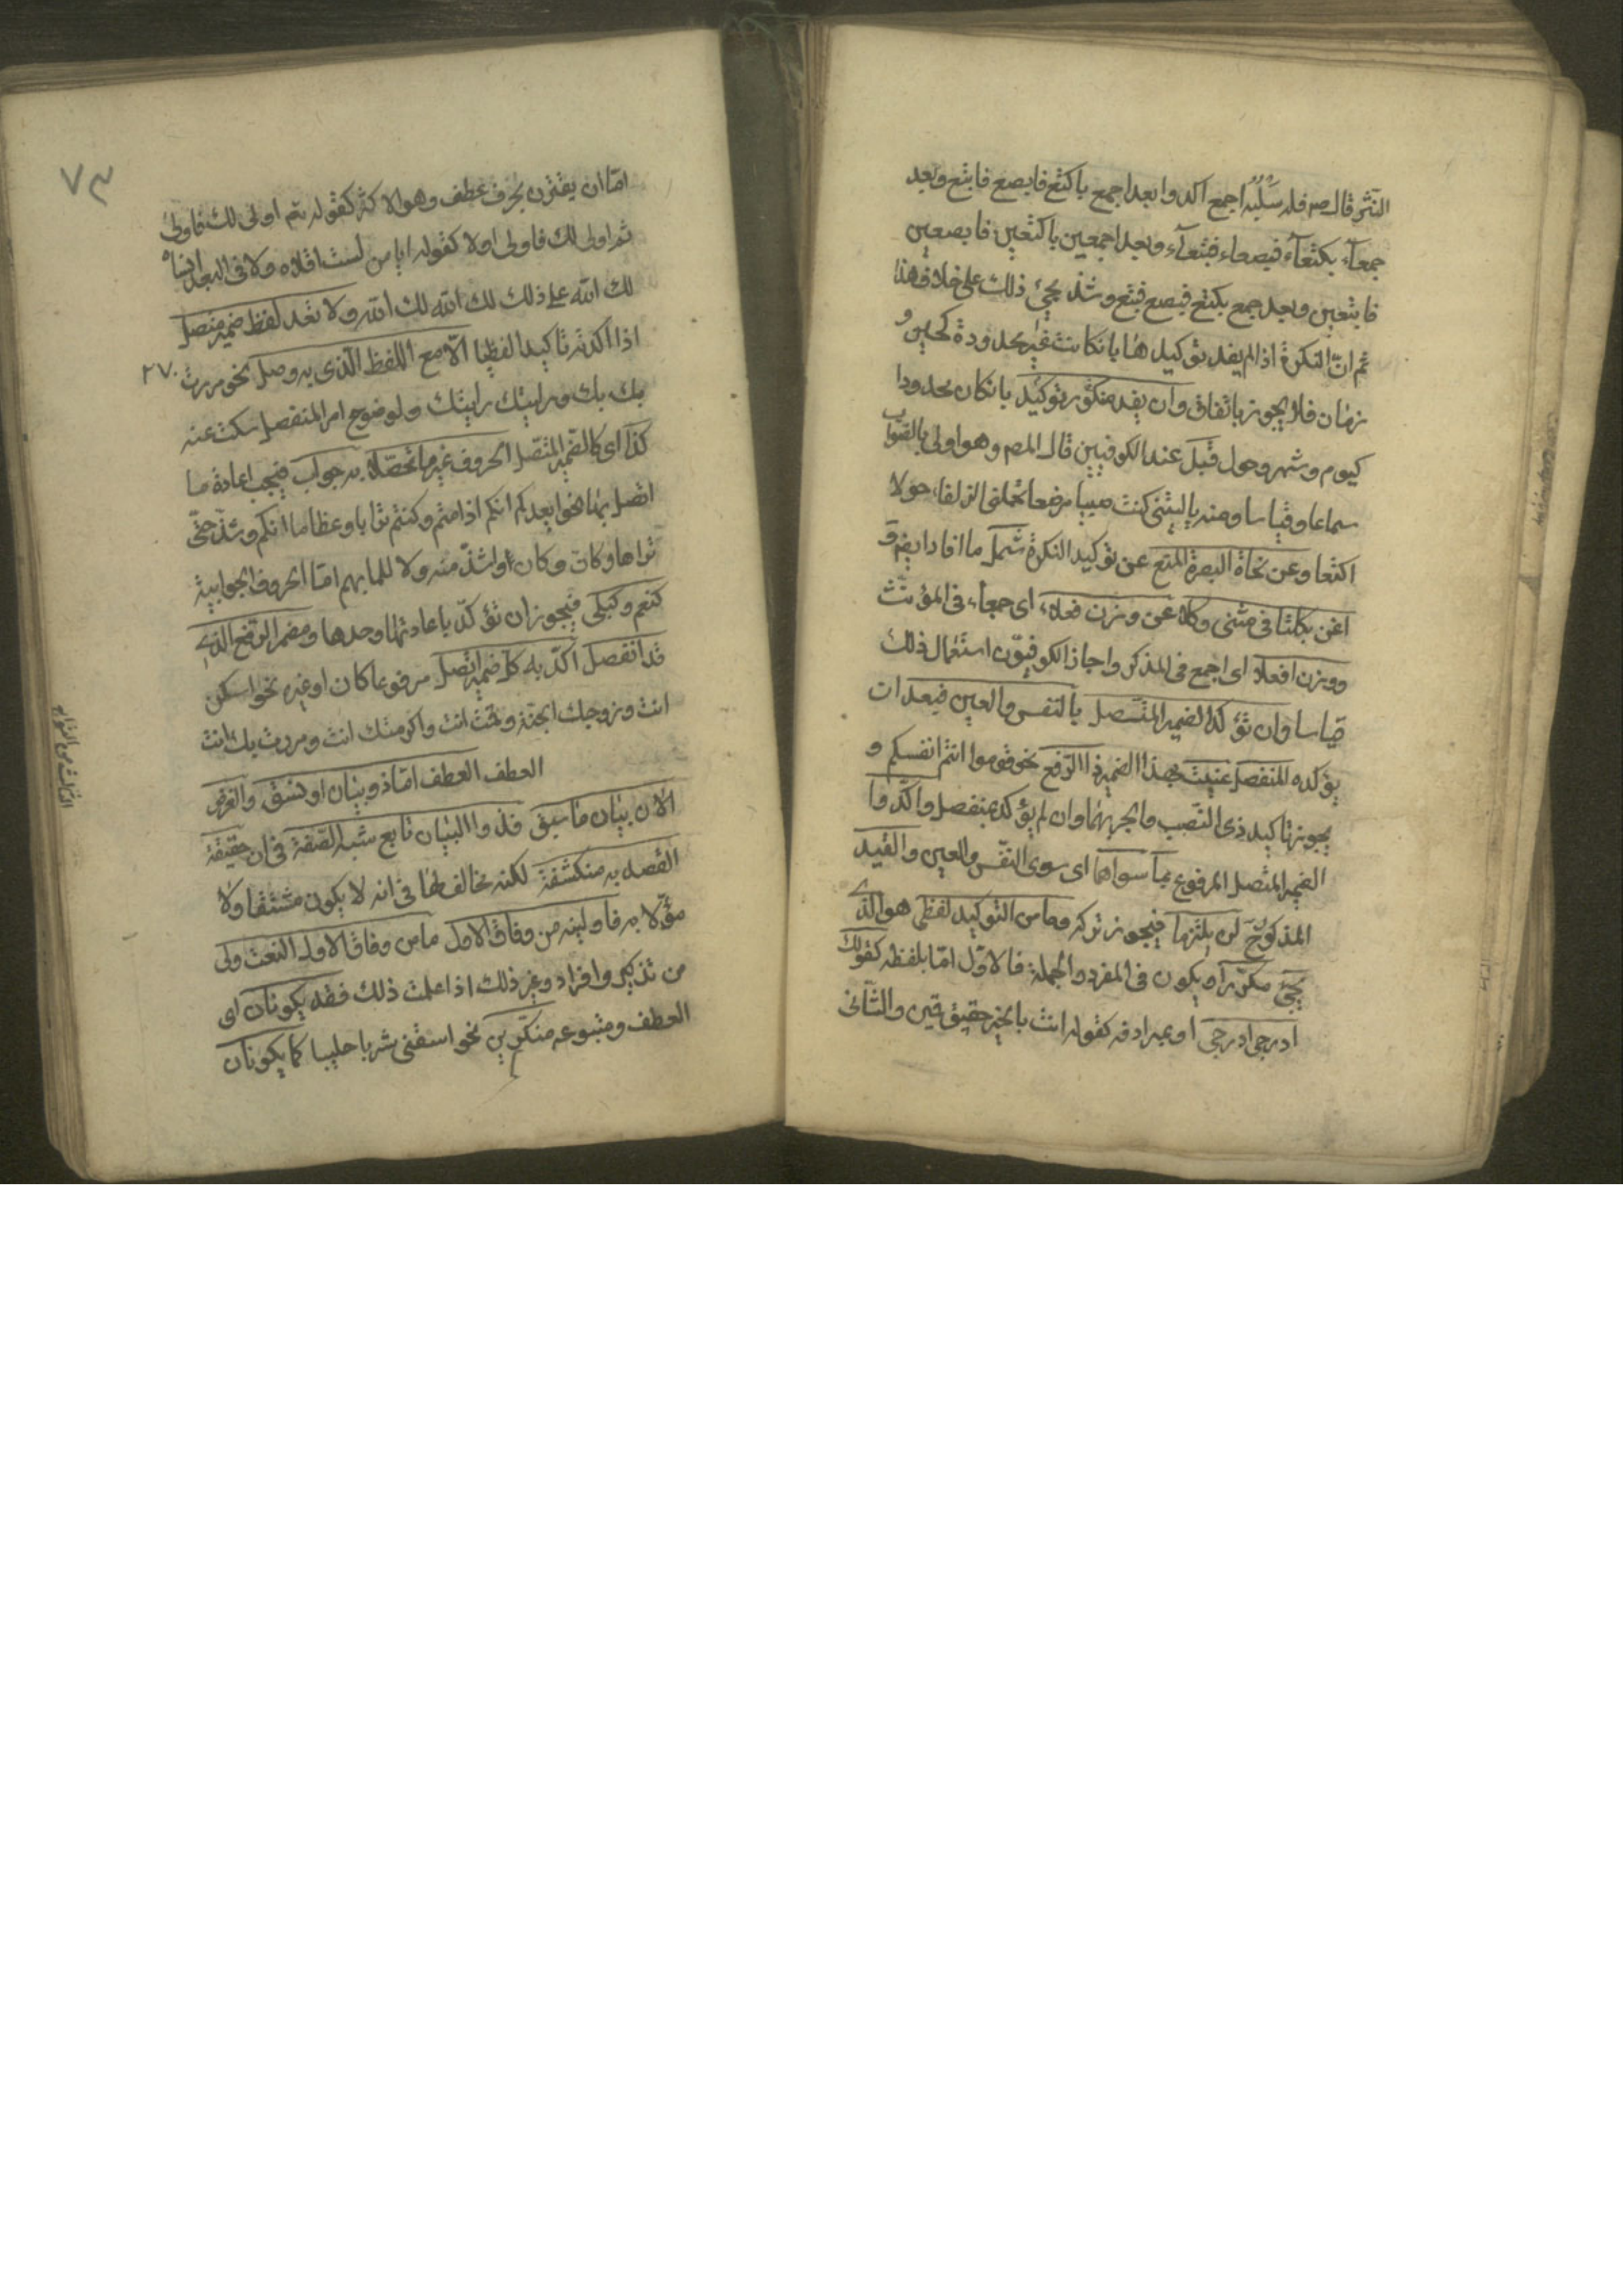 النثر قال صم فله سلبه اجمع اكد وا بعد اجمع باكتع فابصع فابتع وبعد
جمعآء بكتعآء فبصعاء فبتعآء وبعد اجمعين باكتعين فابصعين
فابتعين وبعد جمع بكتع فبصع فبتع وشذ يجئ ذلك على خلاف هذا
ثم ان النكرة اذا لم يفد توكيدها بانكانت غير محدودة كحين و
زمان فلا يجوز باتفاق وان يفد منكور توكيد بانكان محدودا
كيوم وشهر وحول قبل عند الكوفيين قال المصم وهو اولى بالصواب
سماعا وقياسا ومنه يا ليتنى كنت صبيا مرضعا تحملنى الزلفاء حولا
اكتعا وعن نحاة البصرة المنع عن توكيد النكرة شمل ما افاد ايضم و
اغن بكلتا فى مثنى وكلا عن وزن فعلاء اى جمعاء فى المؤنث
ووزن افعلا اى اجمع فى المذكر واجاز الكوفيون استعمال ذلك
قياسا وان تؤكد الضمير المتصل بالنفس والعين فبعد ان
يؤكده المنفصل عنيت بهذا الضمير ذا الرفع نحو قوموا انتم انفسكم و
يجوز تاكيد ذى النصب والجر بهما وان لم يؤكد بمنفصل واكدوا
الضمير المتصل المرفوع بما سواهما اى سوى النفس والعين والقيد
المذكور لن يلتزما فيجوز تركه وما من التوكيد لفظى هو الذى
يجئ مكررا ويكون فى المفرد والجملة فالاول اما بلفظه كقولك
ادرجى ادرجى او بمرادفه كقوله انت بالخير حقيق قمين والثانى
٧٣
اما ان يقترن بحرف عطف وهو الاكثر كقوله تعم اولى لك فاولى
ثم اولى لك فاولى اولا كقوله ايا من لست اقلاه ولا فى البعد انساه
لك الله على ذلك لك الله لك الله ولا تعد لفظ ضمير متصل
اذا اكدته تاكيدا لفظيا الا مع اللفظ الذى به وصل نحو مررت
بك بك ورايتك رايتك ولوضوح امر المنفصل سكت عنه
كذا اى كالضمير المتصل الحروف غير ما تحصلا به جواب فيجب اعادة ما
اتصل بها نحو ايعدكم انكم اذا متم وكنتم ترابا وعظاما انكم وشذ حتى
تراها وكان وكان اولشذ منه ولا للما بهم اما الحروف الجوابية
كنعم وكبلى فيجوز ان تؤكد باعادتها وحدها ومضمر الرفع الذى
قد انفصل اكد به كل ضمير اتصل مرفوعا كان او غيره نحو اسكن
انت وزوجك الجنة وقمت انت واكرمتك انت ومررت بك انت
العطف العطف اما ذو بيان او نسق والغرض
الان بيان ما سبق فذو البيان تابع شبه الصفة فى ان حقيقة
القصد به منكشفة لكنه مخالف لها فى انه لا يكون مشتقا ولا
مؤولا به فاولينه من وفاق الاول ما من وفاق الاول النعت ولى
من تذكير وافراد وغير ذلك اذا علمت ذلك فقد يكونان اى
العطف ومتبوعه منكرين نحو اسقنى شربا حليبا كما يكونان
٢٧٠
الثالث من التوابع